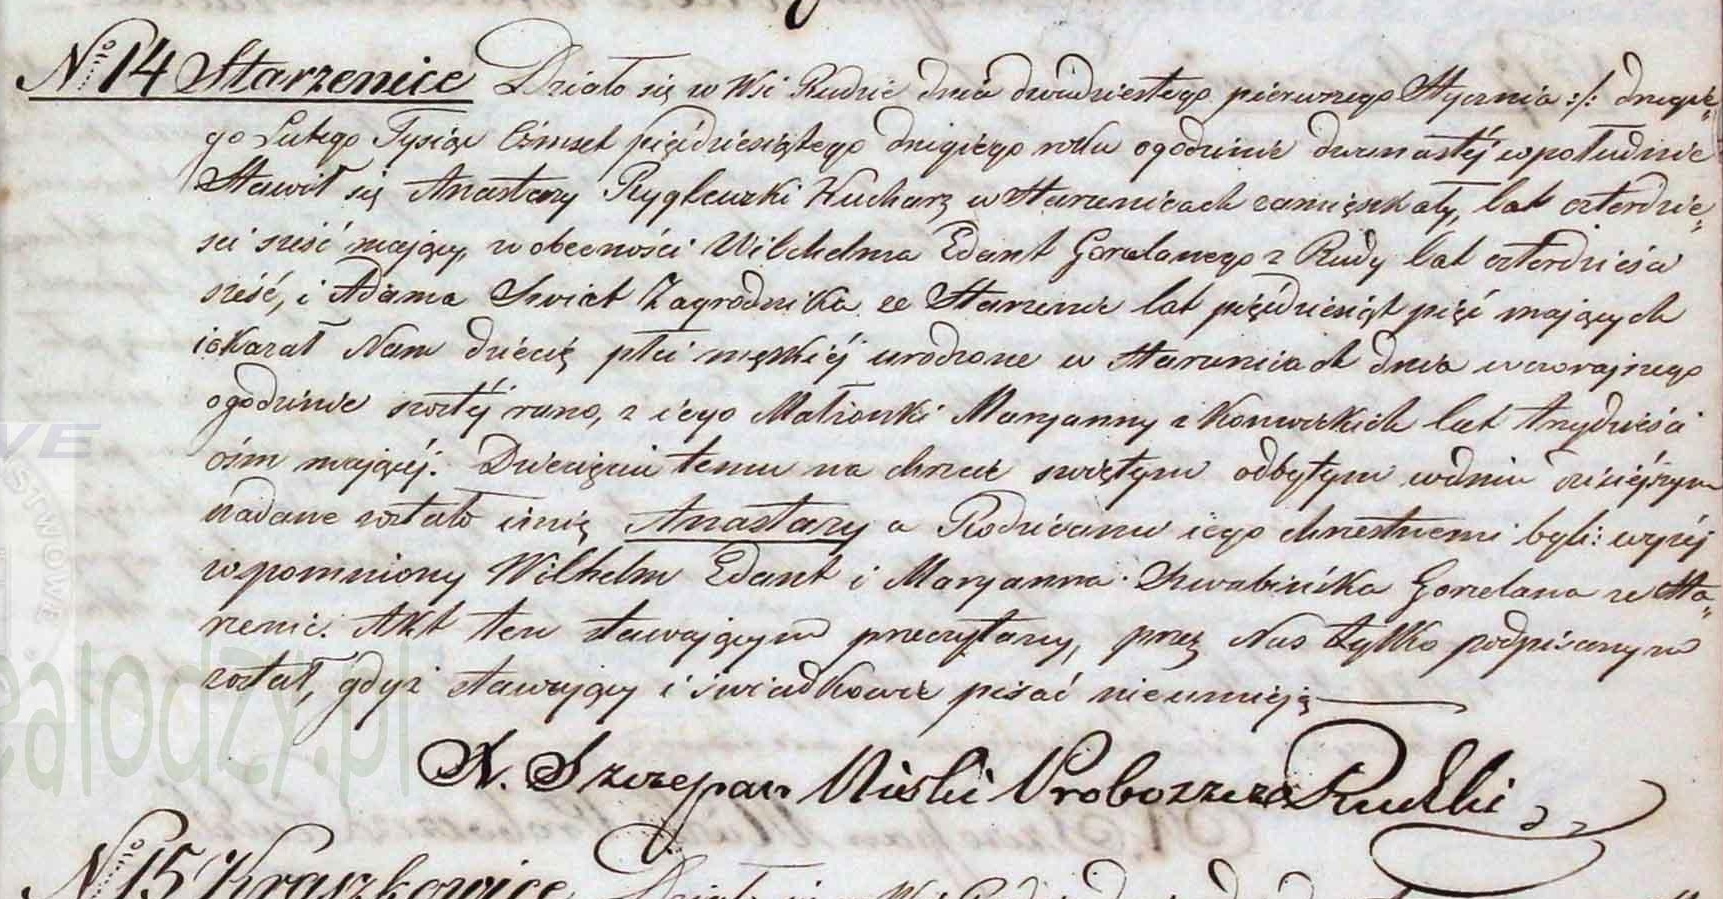 Nro 14 Starzenice Działo się w Wsi Rudzie dnia dwudziestego pierwszego Stycznia :/: drugie=
go Lutego Tysiąc Ośmset pięćdziesiątego drugiego roku ogodzinie dwunastéj wpołudnie
Stawił się Anastazy Kucharz w Starzenicach zamięszkały, lat czterdzie=
sci sześć maiący, w obecności Wilchelma Edant Gorzelanego z Rudy lat czterdzieści
sześć, i Adama Swiat Zagrodnika ze Starzenic lat pięćdziesiąt pięć maiących
iokazał Nam dziecię płci męzkiéj urodzone w Starzenicach dnia wczorajszego
ogodzinie szóstéj rano, z iego Małżonki Maryanny z lat trzydzieści
óśm maiącéj. Dziecięciu temu na chrzcie swiętym odbytym wdniu dzisiéjszym
nadane zostało imię Anastazy a Rodzicami iego chrzestnemi byli: wyżéj
wspomniony Wilhelm Edant i Maryanna Szwabińska Gorzelana ze Sta=
rzenic. Akt ten stawaiącym przeczytany, przez Nas tylko podpisanym
został, gdyż stawaiący i świadkowie pisać nieumieją
X. Szczepan Proboszcz Rudzki
Nro 15 Kraszkowice Działo się w Wsi
VE
STWOWE
ealodzy.pl